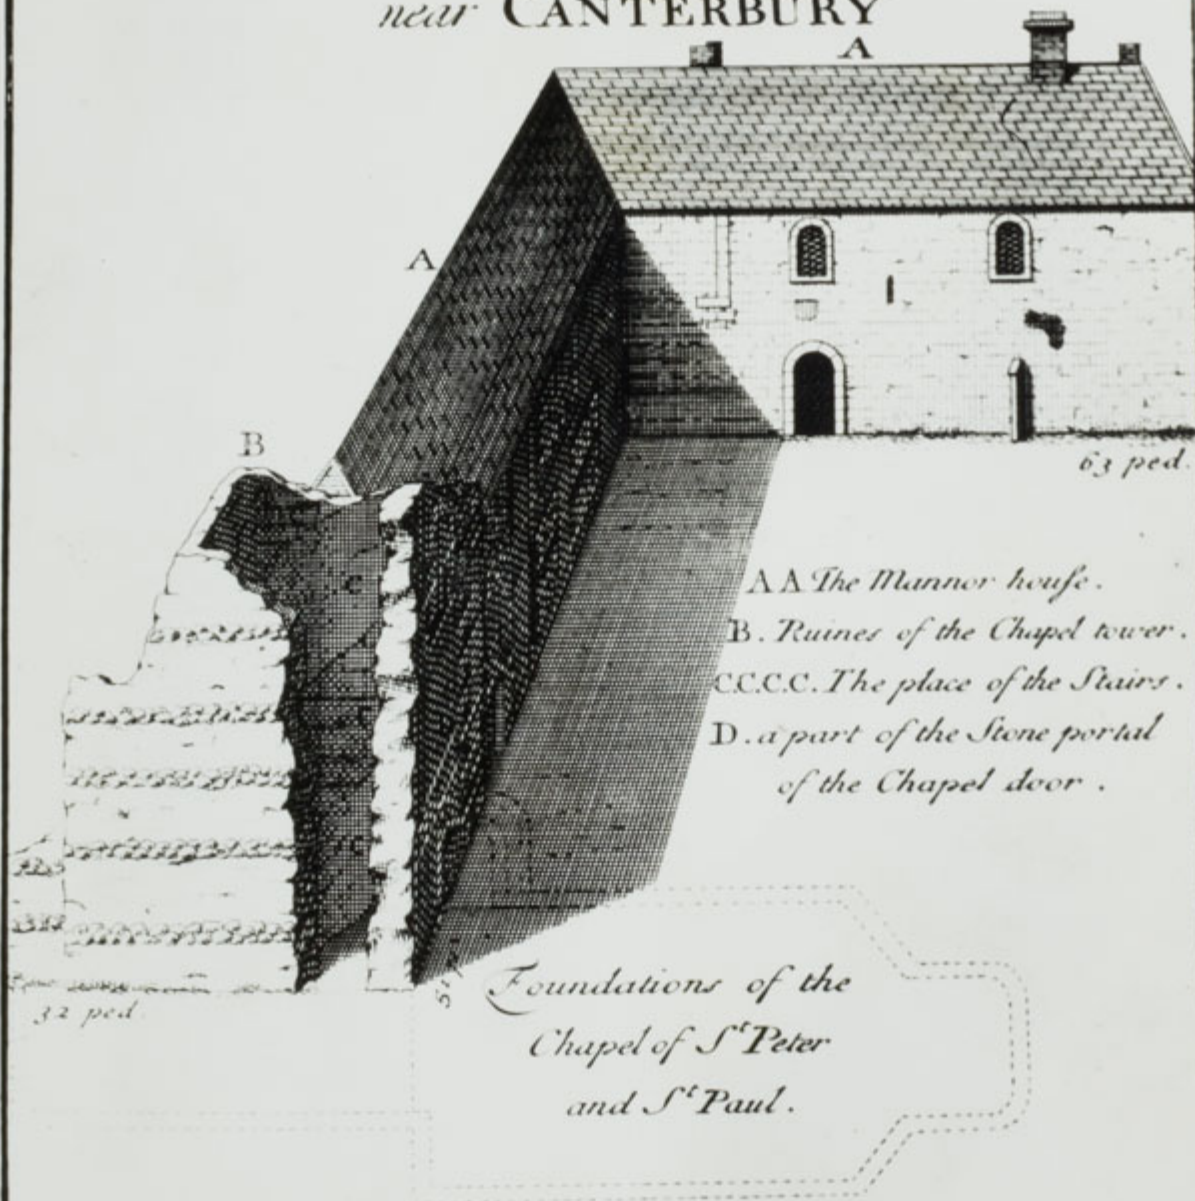 near CANTERBURY
A
A
B
63 ped.
C
AA The Mannor houſe.
B. Ruines of the Chapel tower.
C
C.C.C.C. The place of the Stairs.
D. a part of the Stone portal
of the Chapel door.
C
Foundations of the
Chapel of St Peter
and St Paul.
32 ped.